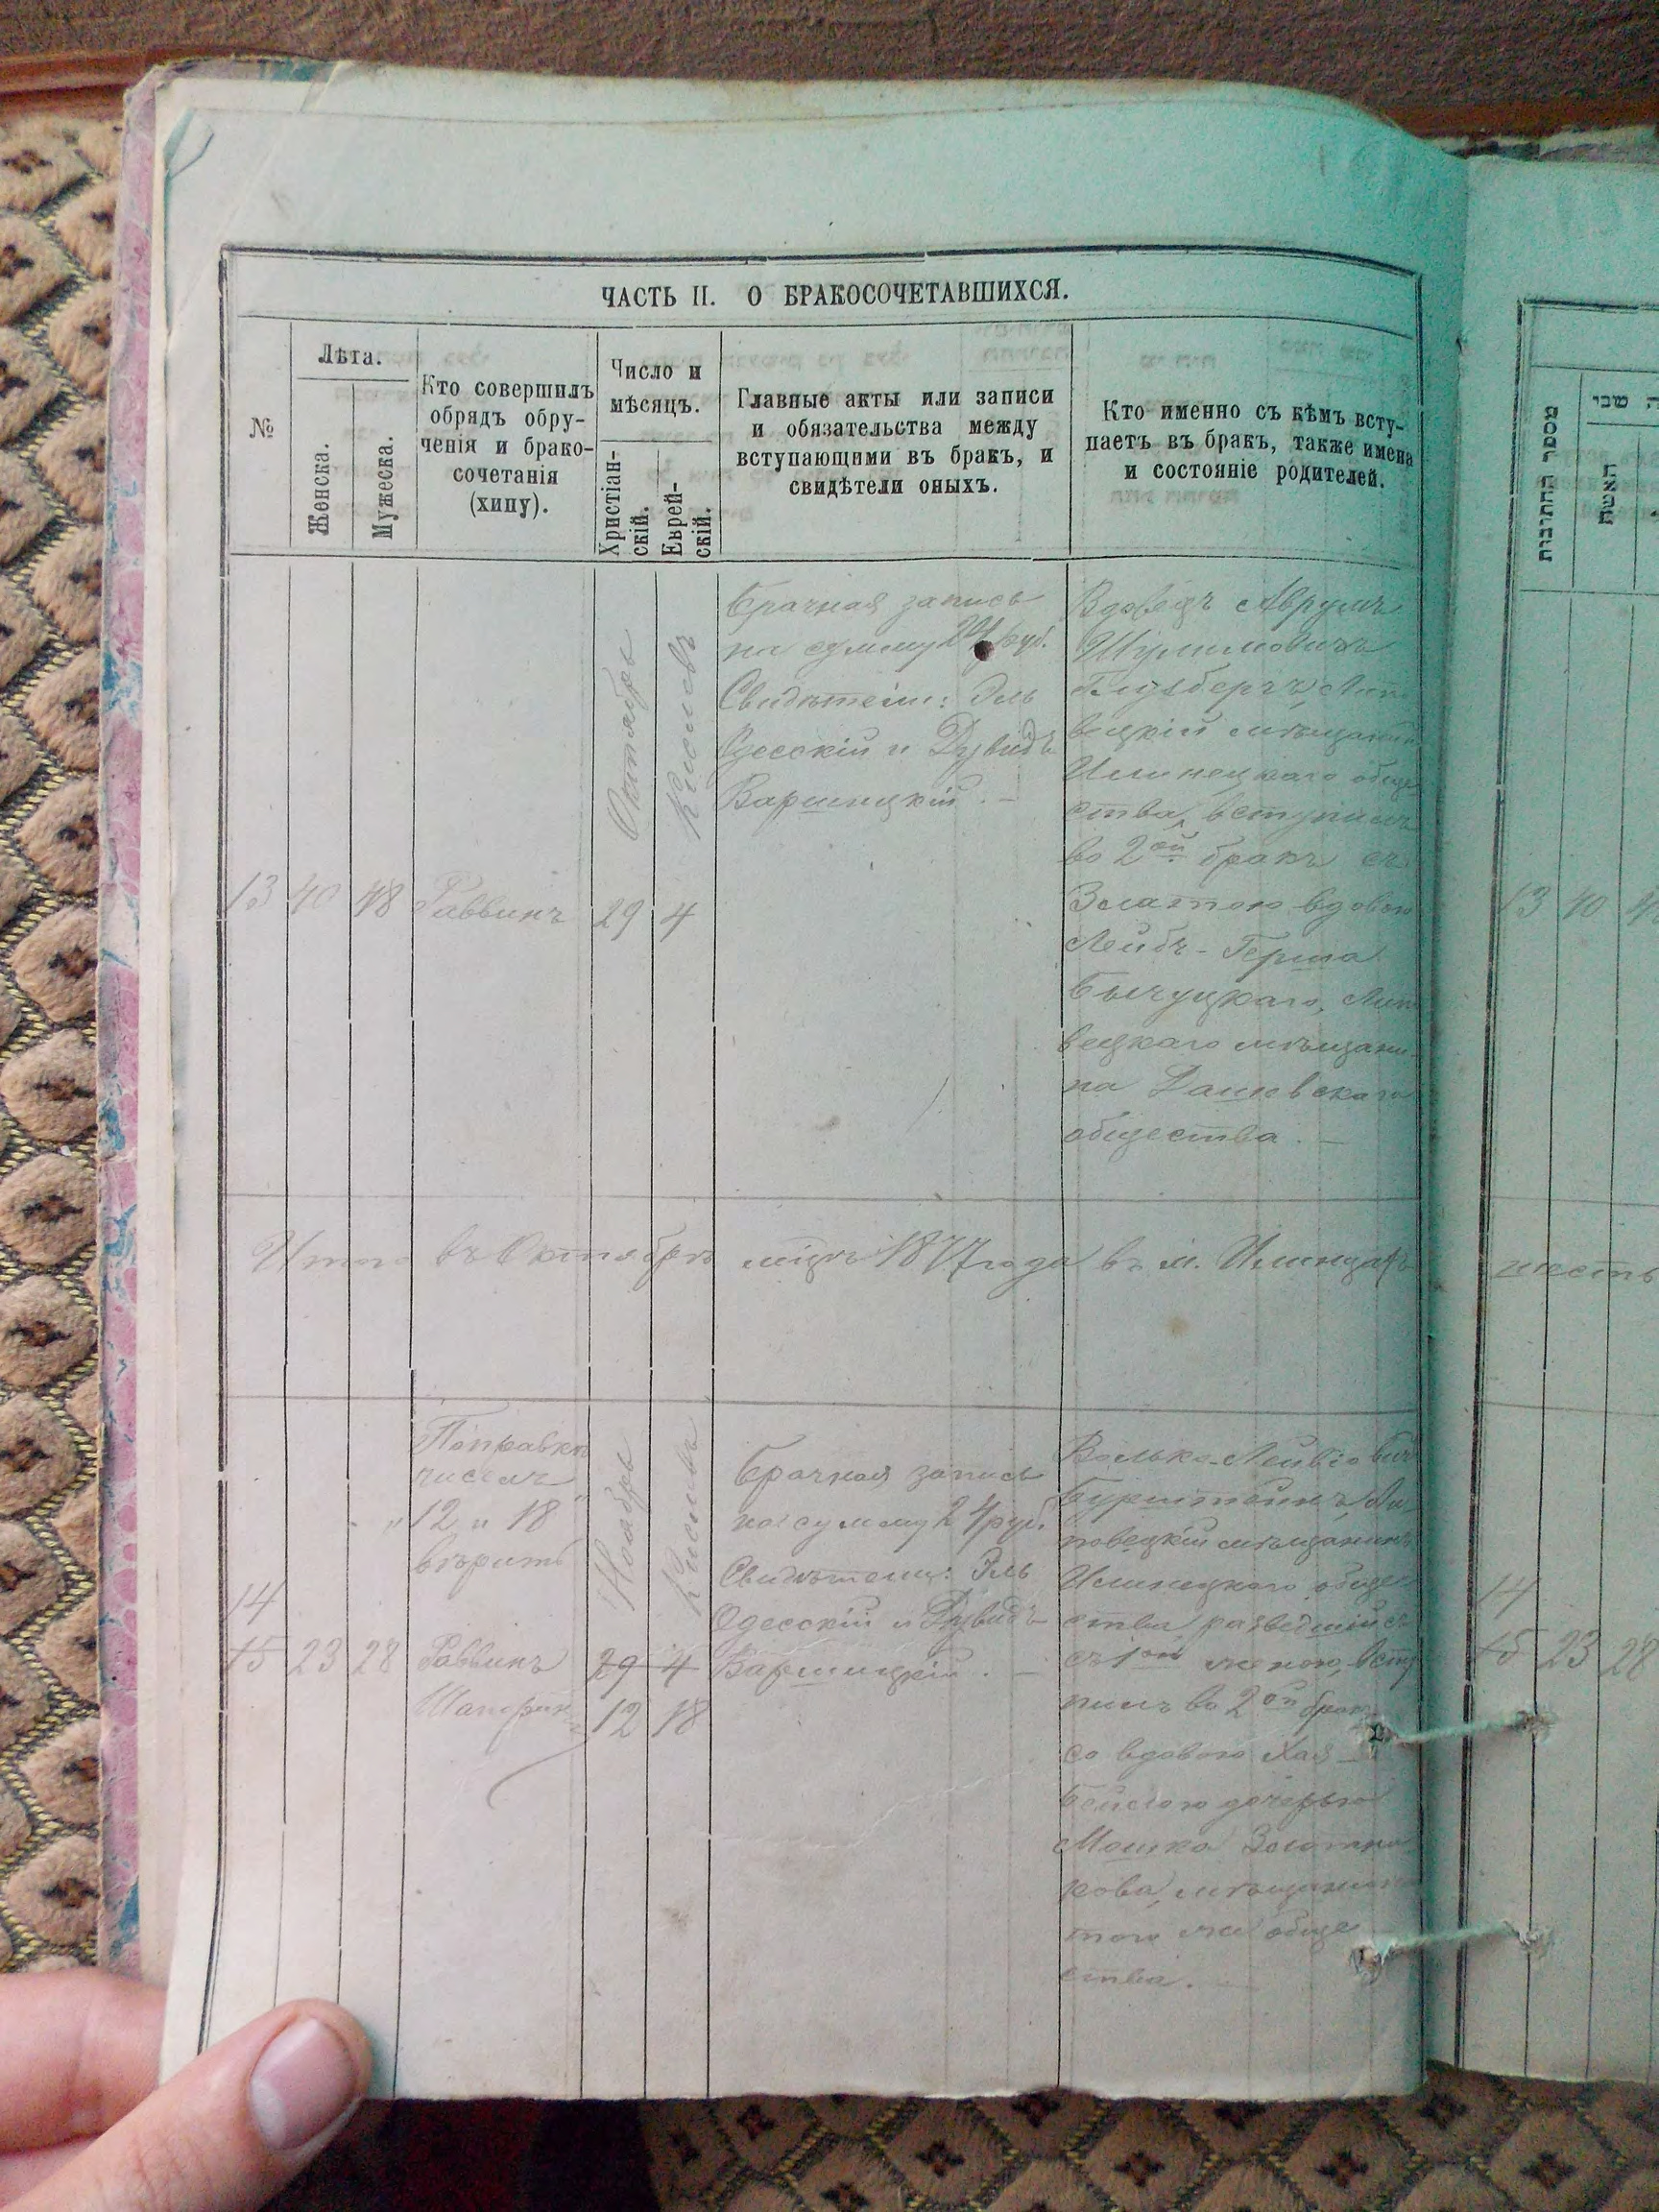 ЧАСТЬ II. О БРАКОСОЧЕТАВШИХСЯ.
№
Лѣта.
Женска.
Мужеска.
Кто совершилъ
обрядъ обру-
ченія и брако-
сочетанія
(хипу).
Число и
мѣсяцъ.
Христіан-
скій.
Еврей-
скій.
Главные акты или записи
и обязательства между
вступающими въ бракъ, и
свидѣтели оныхъ.
Кто именно съ кѣмъ всту-
паетъ въ бракъ, также имена
и состояніе родителей.
13 40 48 Раввинъ
Октября
29
Кислевъ
4
Брачная запись
на сумму 24 руб.
Свидѣтели: Эль
Одесскій и Дувидъ
Варшицкій. —
Вдовецъ Аврумъ
Шулимовичъ
Гинзбергъ, Лип
вецкій мѣщанин
Илинецкаго обще
ства, вступилъ
во 2ой бракъ съ
Златою вдовою
Лейбъ-Герша
вецкаго мѣщани-
на Дашевскаго
общества. —
Итого въ Октябрѣ мѣцѣ 1877 года въ м. Илинцахъ
шесть
14
15 23 28
Поправкѣ
числъ
"12 и 18"
вѣрить
Раввинъ
Ноябрь
29
12
Кислевъ
4
18
Брачная запись
на сумму 24 руб.
Свидѣтели: Эль
Одесскій и Дувидъ
Варшицкій. —
Волько-Лейвіович
Бурштейнъ, Ли
повецкій мѣщанинъ
Илинецкаго обще
ства разведшійся
съ 1ой женою, всту
пилъ во 2ой бракъ
со вдовою Хая —
Бейлою дочерью
Мошка Золотни
кова, мѣщанина
того же обще
ства. —
מספר החתונות
האשה
שני
13 40
14
15 23 28